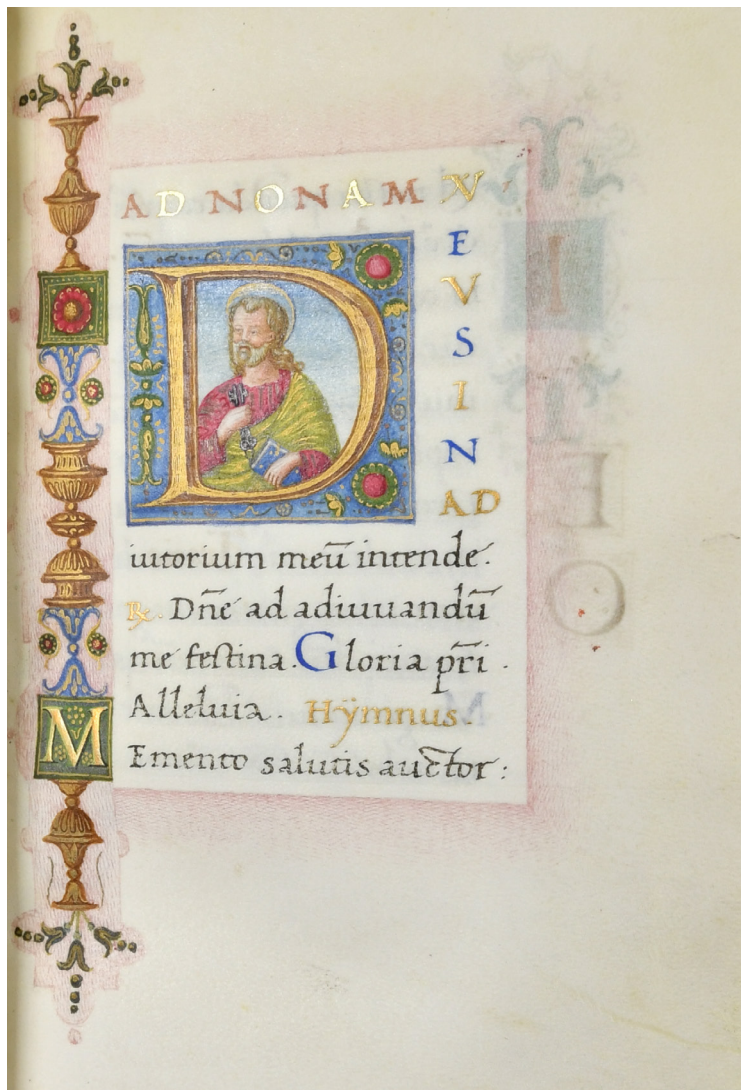 AD NONAM ℣.
DEVS IN AD
iutorium meū intende.
℞. Dn̄e ad adiuuandū
me feſtina. Gloria pr̄i.
Alleluia. Hÿmnus.
MEmento salutis auctor: